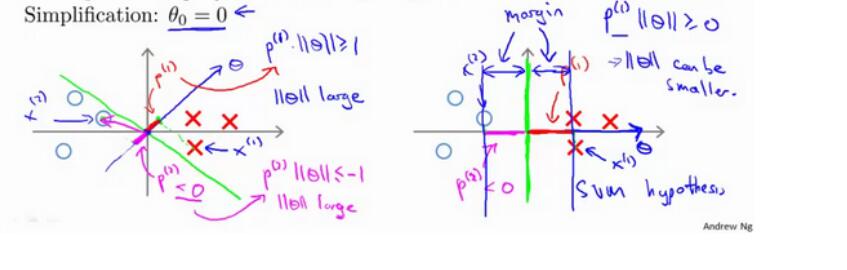 Simplification: θ₀ = 0 ←
p⁽¹⁾ · ||θ|| ≥ 1
θ
p⁽¹⁾
||θ|| large
x⁽²⁾
← x⁽¹⁾
p⁽²⁾
< 0
p⁽²⁾ ||θ|| ≤ -1
||θ|| large
margin
p⁽¹⁾ ||θ|| ≥ 0
→ ||θ|| can be
smaller.
x⁽²⁾
p⁽¹⁾
θ
x⁽¹⁾
p⁽²⁾ < 0
SVM hypothesis
Andrew Ng